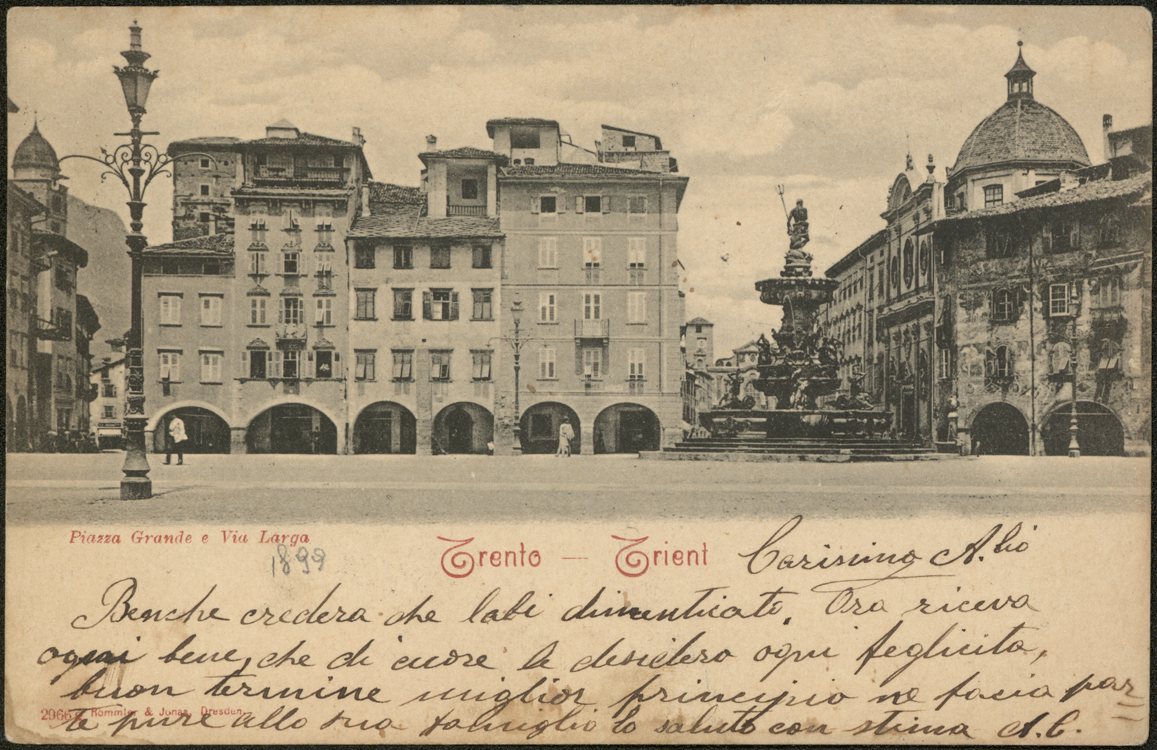 Piazza Grande e Via Larga
1899
Trento — Trient
Carissimo A.lio
Benche credera che labi dimenticato. Ora riceva
ogni bene, che di cuore le desidero ogni feglicita,
buon termine miglior principio ne facia par
te pure allo sua famiglio lo saluto con stima A.C.
2966 Römmler & Jonas, Dresden.